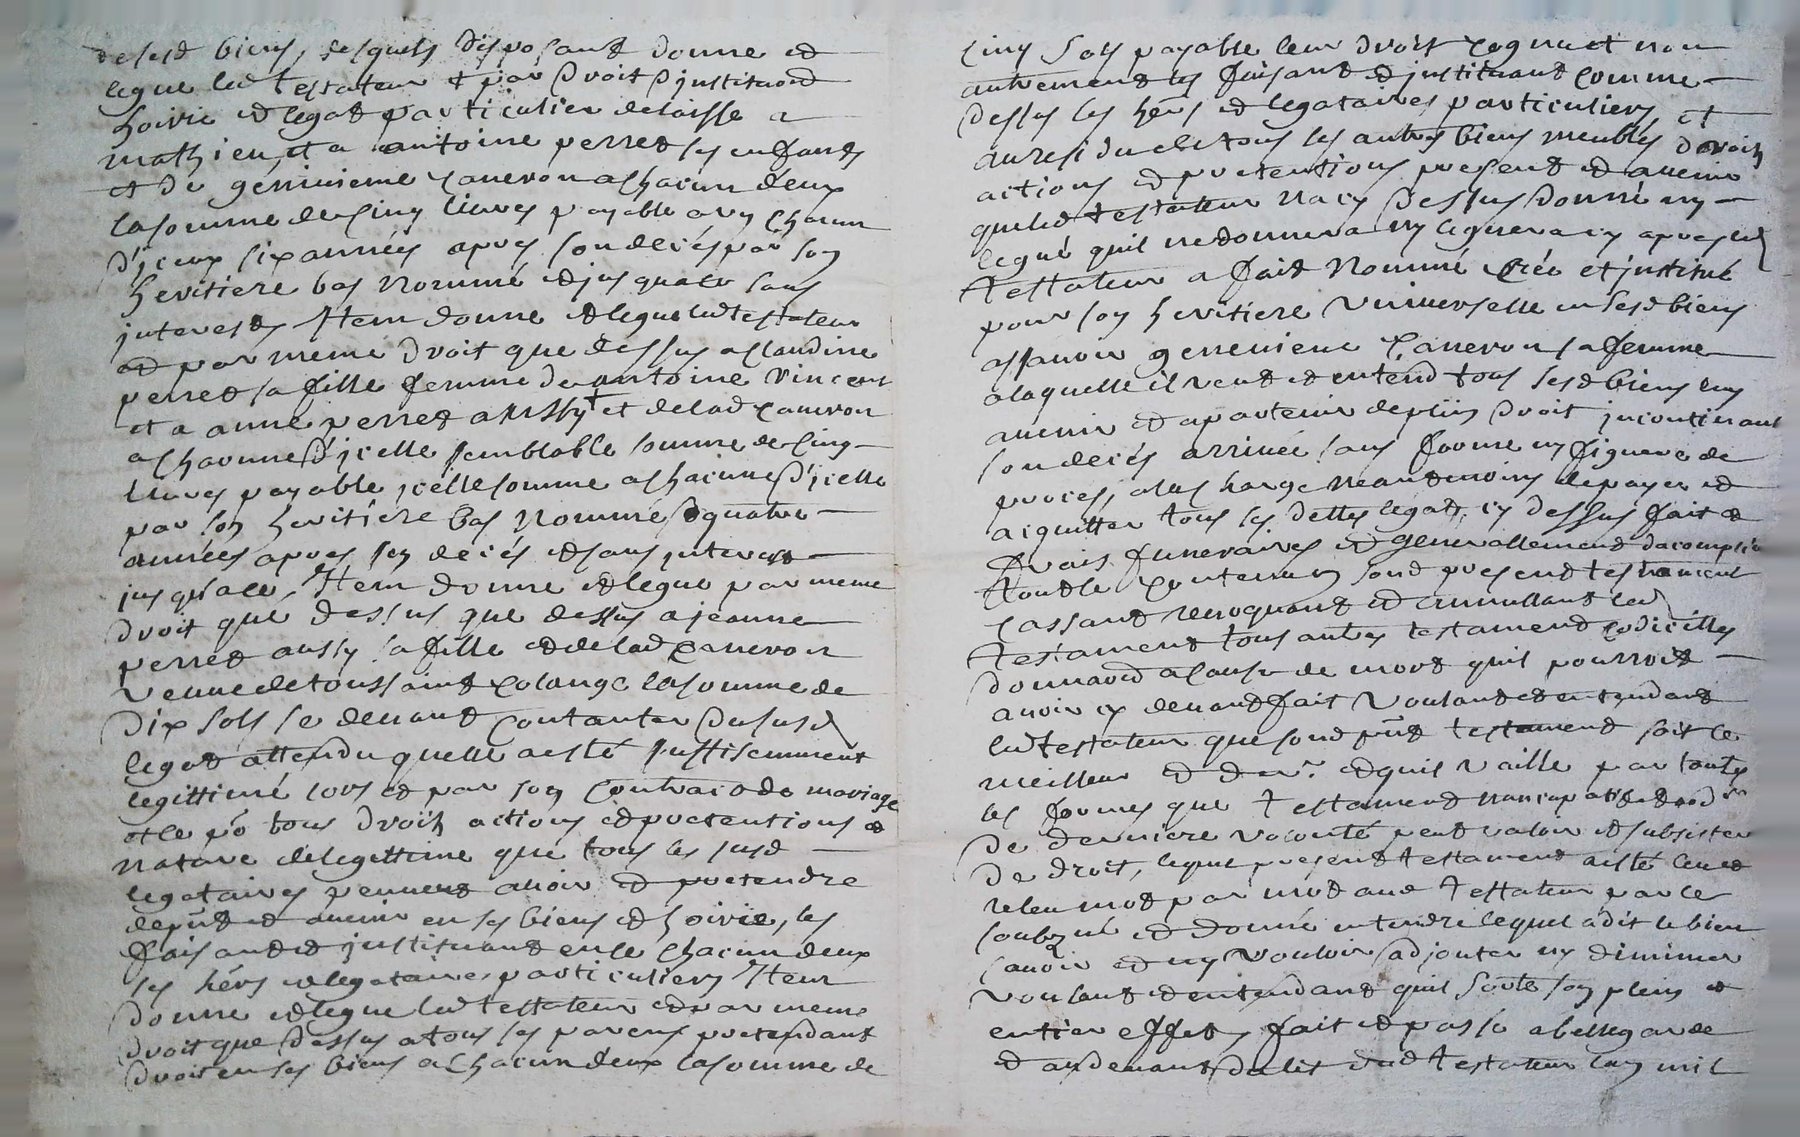 desesd biens, desquels disposant donne et
legue led testateur et par droit d'institu&#111;n
hoirie et legat particulier delaisse a
mathieu, et a antoine perret ses enfants
et de geneuieme caneron a chacun deux
la somme de cinq liures payable a un chacun
d'jceux six années apres son decés par son
heritiere bas nommé et jusqualor sans
interests Item donne et legue led testateur
et par meme droit que dessus a claudine
perret sa fille femme de antoine vincent
et a anne perret aussy + et de lad caneron
a chacunne d'jcelle semblable somme de cinq
liures payable jcelle somme a chacune d'jcelle
par son heritiere bas nommé quatre
années apres son decés et sans interest
jusqu'a ce, Item donne et legue par meme
droit que dessus que dessus a jeanne
perret aussy sa fille et de lad caneron
veuue de toussaint colange la somme de
dix sols se deuant contanter du susd
legat attendu quelle a esté suffisemment
legittimé lors et par son contract de mariage
et le po tous droits actions et pretentions et
nature de legittime que tous les susd
legataires peuuent auoir et pretendre
de pnt et auenir en ses biens et hoirie, les
faisant et jnstituant en ce chacun deux
ses hérs et legataires particuliers Item
donne et legue led testateur et par meme
droit que dessus a tous ses parens pretendant
droit en ses biens a chacun deux la somme de
cinq sols payable leur droit cognu et non
autrement les faisant et jnstituant comme
dessus ses hérs et legataires particuliers, et
au residu de tous ses autres biens meubles droits
actions et pretentions present et auenir
que led testateur n'a cy dessus donné ny
legué quil ne donnera ny leguera cy apres led
testateur a fait nommé créé et jnstitué
pour son heritiere vniuerselle en sesd biens
assauoir geneuieue caneron sa femme
a laquelle il veut et entend tous sesd biens luy
auenir et apartenir de plein droit jncontinant
son decés arriué sans forme ny figure de
proces, a la charge neantmoins de payer et
acquitter tous ses dettes legats cy dessus fait et
frais funeraires et generallement dacomplir
tout le contenu en sond present testament
cassant reuoquant et annullant led
testament tous autres testament codicilles
donna&#111;n a cause de mort quil pourroit
auoir cy deuant fait voulant et entendant
led testateur que sond pnt testament soit le
meilleur et der. et quil vaille par toutes
les formes que testament nancupatif et
de derniere volonté peut valoir et subsister
de droit, leque present testament a esté leu et
releu mot par mot aud testateur par le
soubzné et donné entendre lequel a dit le bien
sauoir et ny vouloir adjouter ny diminuer
voulant et entendant quil sorte son plein et
entier effet, fait et passé a bellegarde
et au deuant du lit dud testateur lan mil